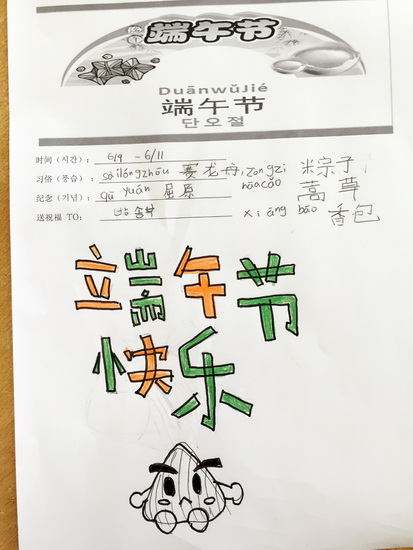 端午节
DuānwǔJié
端午节
단오절
时间 (시간): 6/9 - 6/11
习俗 (풍습): sàilóngzhōu 赛龙舟, zongzi 粽子,
纪念 (기념): qū yuán 屈原 hāocǎo 蒿草
送祝福 TO: xiāng bāo 香包
端午节
快乐